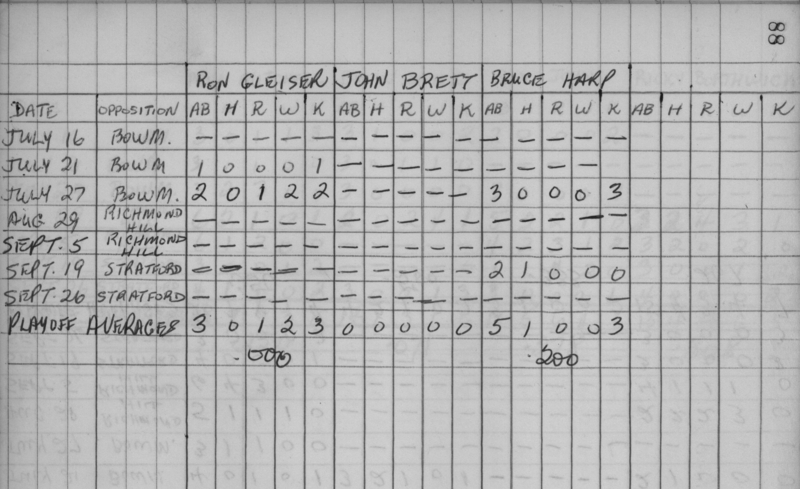 88
RON GLEISER JOHN BRETT BRUCE HARP
DATE OPPOSITION AB H R W K AB H R W K AB H R W K AB H R W K
JULY 16 BOWM. — — — — — — — — — — — — — — —
JULY 21 BOWM 1 0 0 0 1 — — — — — — — — — —
JULY 27 BOWM. 2 0 1 2 2 — — — — — 3 0 0 0 3
AUG 29 RICHMOND HILL — — — — — — — — — — — — — — —
SEPT. 5 RICHMOND HILL — — — — — — — — — — — — — — —
SEPT. 19 STRATFORD — — — — — — — — — 2 1 0 0 0
SEPT. 26 STRATFORD — — — — — — — — — — — — — — —
PLAYOFF AVERAGES 3 0 1 2 3 0 0 0 0 0 5 1 0 0 3
.000 .200